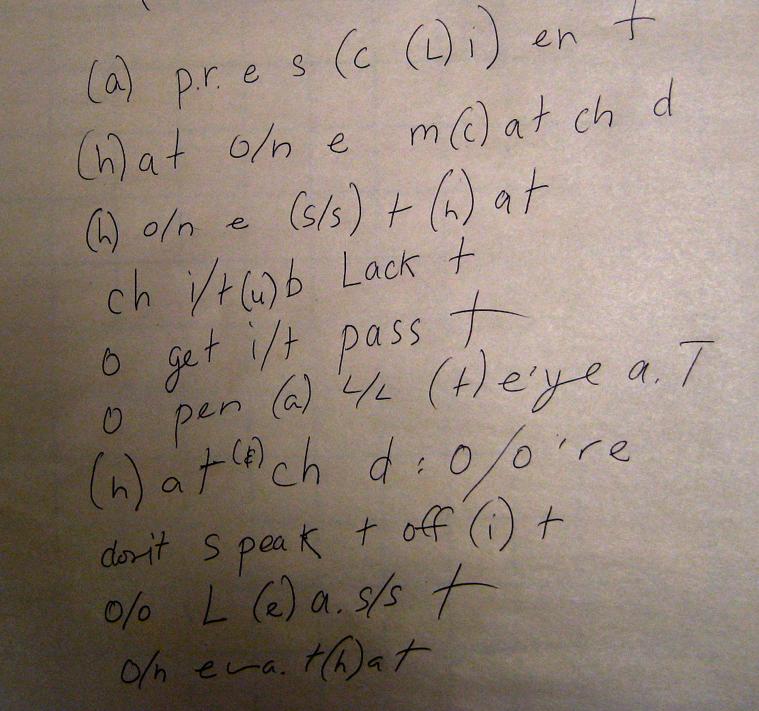 (a) p.r. e s (c (L) i) en t
(h) at o/n e m(c) at ch d
(h) o/n e (s/s) t (h) at
ch i/t(u)b Lack t
o get i/t pass t
o pen (a) L/L (t) e'ye a. T
(h) at (t) ch d : o/o 're
don't s peak t off (i) t
o/o L (e) a. s/s t
o/n e a. t(h)at